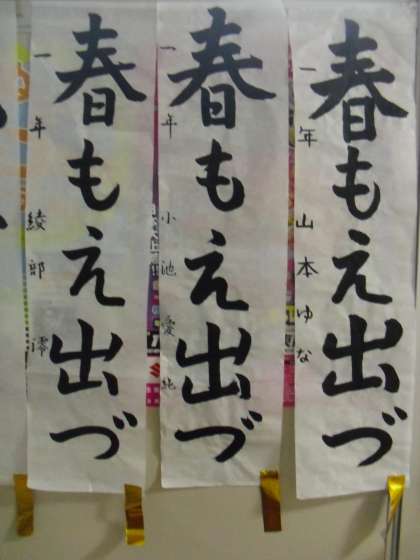 春もえ出づ
一年 山本ゆな
春もえ出づ
一年 小池愛純
春もえ出づ
一年 綾部澪